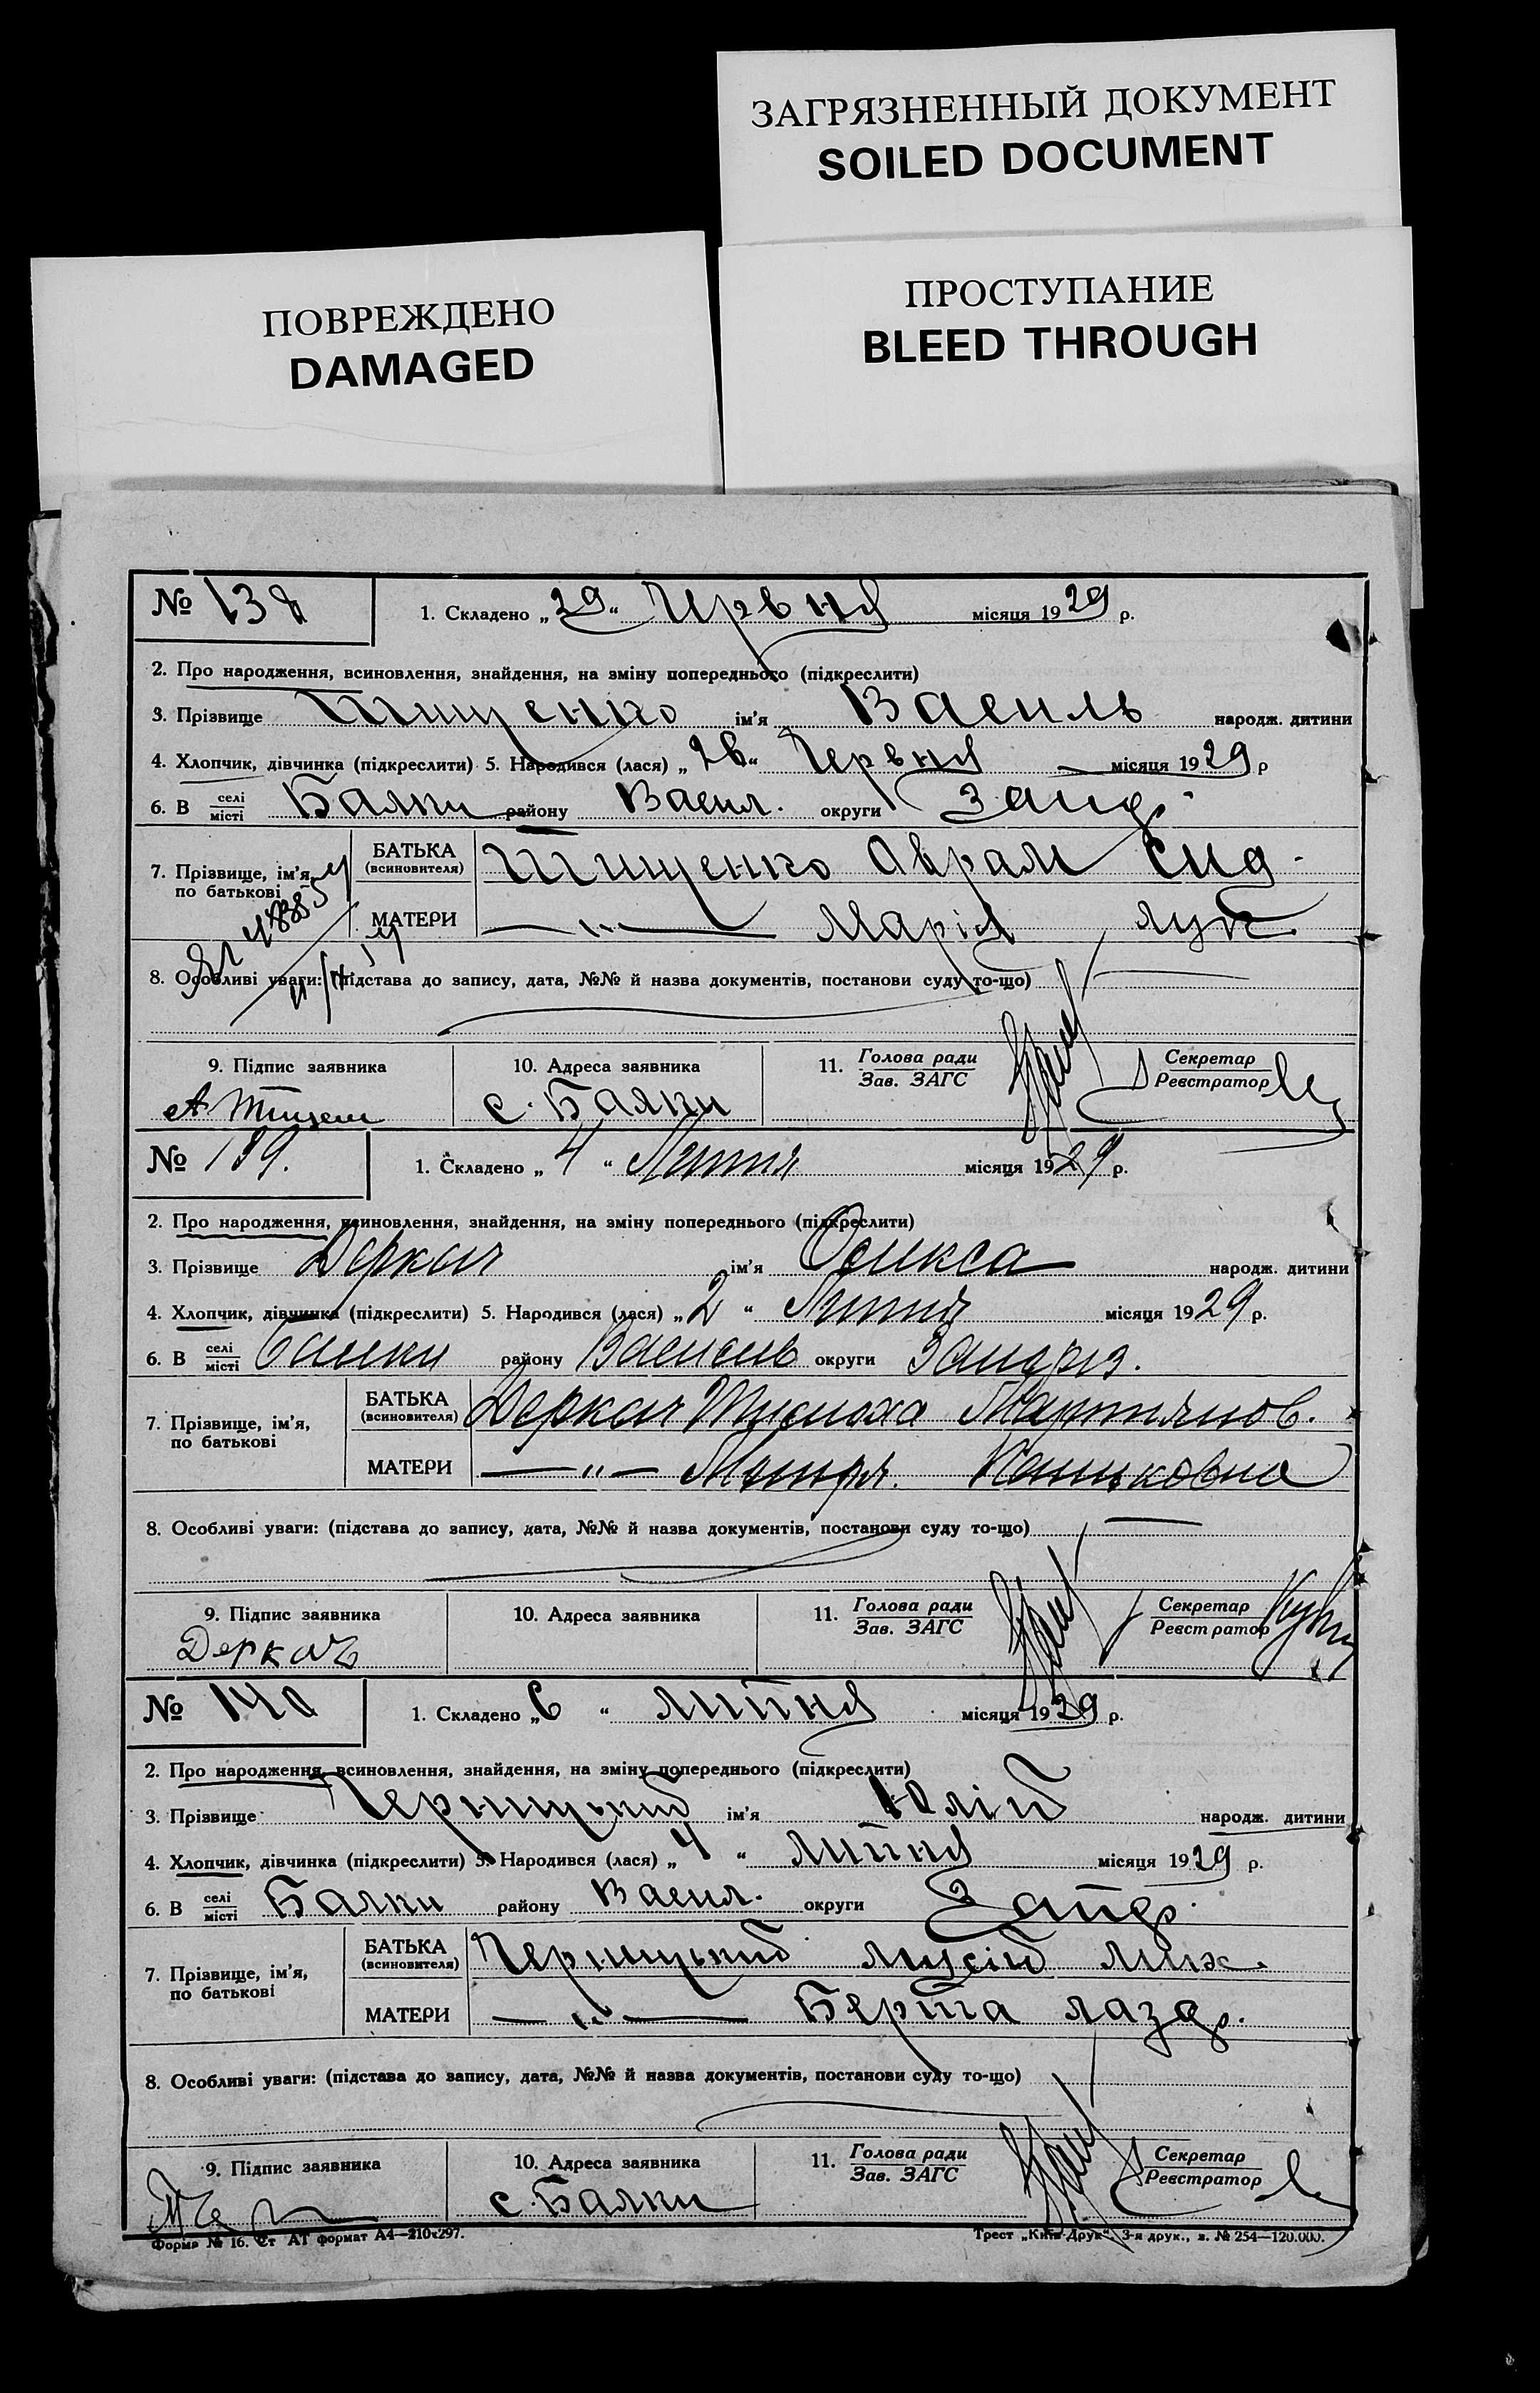 ЗАГРЯЗНЕННЫЙ ДОКУМЕНТ
SOILED DOCUMENT
ПОВРЕЖДЕНО
DAMAGED
ПРОСТУПАНИЕ
BLEED THROUGH
№ 138 1. Складено „29“ Червня місяця 1929 р.
2. Про народження, всиновлення, знайдення, на зміну попереднього (підкреслити)
3. Прізвище Тищенко ім'я Василь народж. дитини
4. Хлопчик, дівчинка (підкреслити) 5. Народився (лася) „26“ Червня місяця 1929 р
6. В селі місті Балки району Васил. округи Запор.
7. Прізвище, ім'я, по батькові БАТЬКА (всиновителя) Тищенко Аврам Сид.
МАТЕРИ —„— Марія Лук.
8. Особливі уваги: (підстава до запису, дата, №№ й назва документів, постанови суду то-що)
9. Підпис заявника 10. Адреса заявника 11. Голова ради Зав. ЗАГС Секретар Реєстратор
А Тищен с. Балки
№ 139. 1. Складено „4“ Липня місяця 1929 р.
2. Про народження, всиновлення, знайдення, на зміну попереднього (підкреслити)
3. Прізвище Деркач ім'я народж. дитини
4. Хлопчик, дівчинка (підкреслити) 5. Народився (лася) „2“ Липня місяця 1929 р.
6. В селі місті Балки району Василів округи Запоріз.
7. Прізвище, ім'я, по батькові БАТЬКА (всиновителя) Деркач Мартинов.
МАТЕРИ —„— Мотря.
8. Особливі уваги: (підстава до запису, дата, №№ й назва документів, постанови суду то-що)
9. Підпис заявника 10. Адреса заявника 11. Голова ради Зав. ЗАГС Секретар Реєстратор
Деркачъ
№ 140 1. Складено „6“ липня місяця 1929 р.
2. Про народження, всиновлення, знайдення, на зміну попереднього (підкреслити)
3. Прізвище Черницький ім'я Юлій народж. дитини
4. Хлопчик, дівчинка (підкреслити) 5. Народився (лася) „4“ липня місяця 1929 р.
6. В селі місті Балки району Васил. округи Запор.
7. Прізвище, ім'я, по батькові БАТЬКА (всиновителя) Черницький Мусій Мих.
МАТЕРИ —„— Берта Лазар.
8. Особливі уваги: (підстава до запису, дата, №№ й назва документів, постанови суду то-що)
9. Підпис заявника 10. Адреса заявника 11. Голова ради Зав. ЗАГС Секретар Реєстратор
с. Балки
Форма № 16. Ст АТ формат А4—210х297. Трест „Київ-Друк“, 3-я друк., з. № 254—120.000.